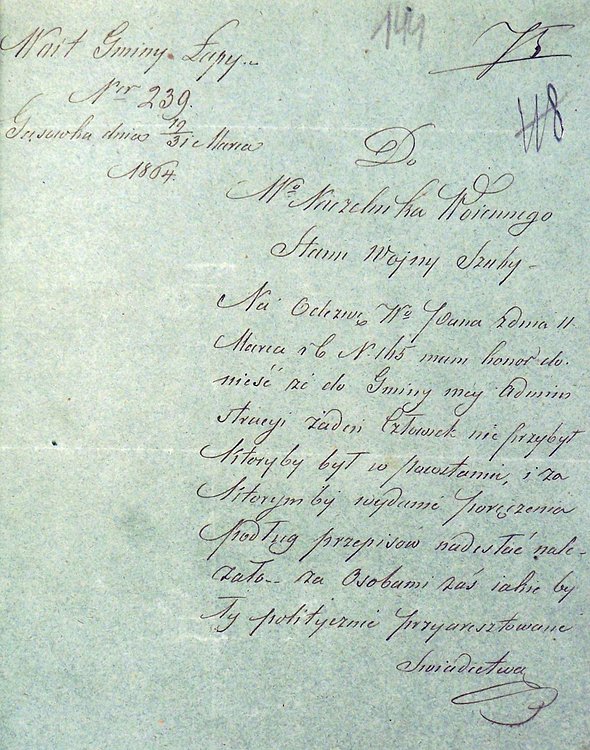 144
75
118
Wóit Gminy Łapy
Nr 239.
Gąsówka dnia 19/31 Marca
1864.
Do
Wo Naczelnika Woiennego
Stanu Wojny
Na Odezwę Wo Pana z dnia 11
Marca r b N. 165 mam honor do-
nieść że do Gminy mey Admin
stracyi żaden Człowiek nie przybył
któryby był w powstaniu, i za
którymby wydanie poręczenia
podług przepisów nadesłać nale-
żało – za Osobami zaś iakie by
ły politycznie przyaresztowane
Swiadectwa